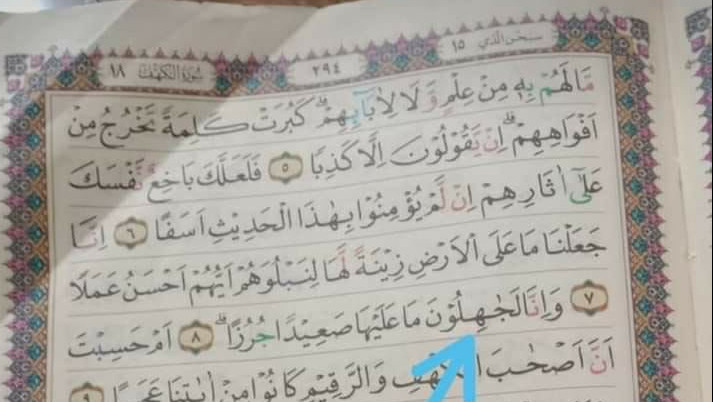 سبحن الذي ١٥ ٢٩٤ سورة الكهف ١٨
مَا لَهُمْ بِهٖ مِنْ عِلْمٍ وَّلَا لِاٰبَآىِٕهِمْ ۗ كَبُرَتْ كَلِمَةً تَخْرُجُ مِنْ
اَفْوَاهِهِمْ ۗ اِنْ يَّقُوْلُوْنَ اِلَّا كَذِبًا ٥ فَلَعَلَّكَ بَاخِعٌ نَّفْسَكَ
عَلٰٓى اٰثَارِهِمْ اِنْ لَّمْ يُؤْمِنُوْا بِهٰذَا الْحَدِيْثِ اَسَفًا ٦ اِنَّا
جَعَلْنَا مَا عَلَى الْاَرْضِ زِيْنَةً لَّهَا لِنَبْلُوَهُمْ اَيُّهُمْ اَحْسَنُ عَمَلًا
٧ وَاِنَّا لَجٰهِلُوْنَ مَا عَلَيْهَا صَعِيْدًا جُرُزًا ۗ ٨ اَمْ حَسِبْتَ
اَنَّ اَصْحٰبَ الْكَهْفِ وَالرَّقِيْمِ كَانُوْا مِنْ اٰيٰتِنَا عَجَبًا ٩